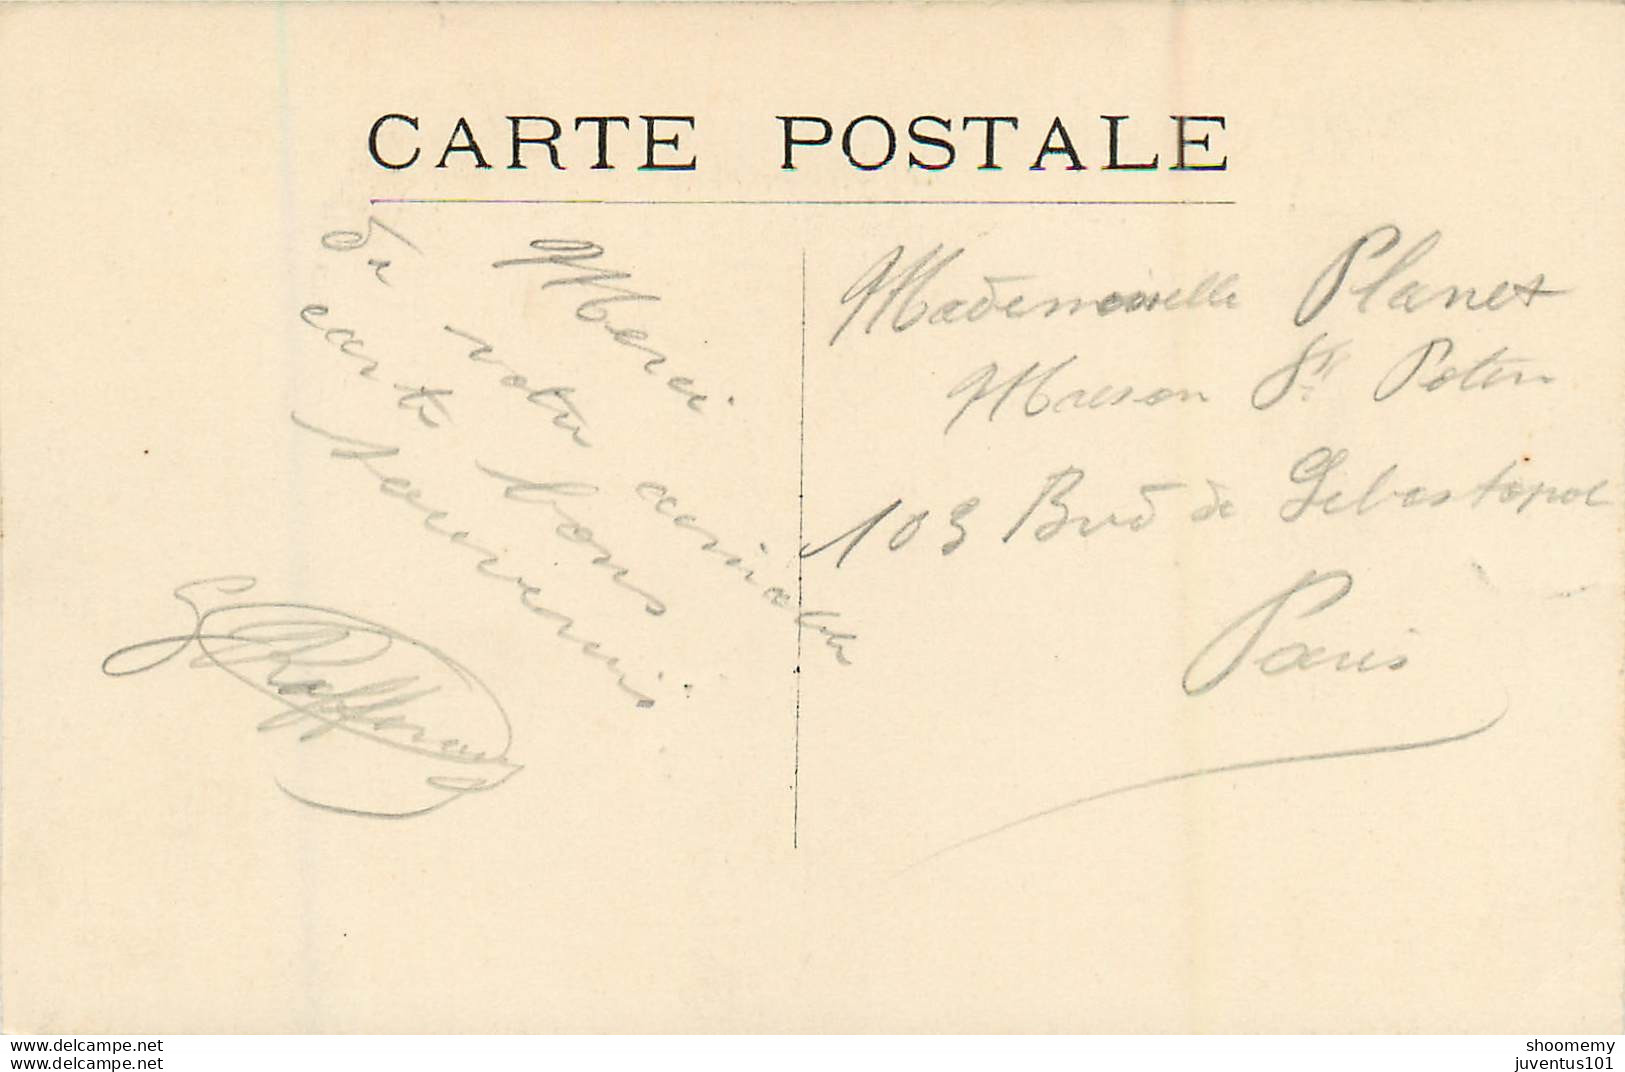 CARTE POSTALE
Merci
de votre aimable
carte bons
souvenirs
Mademoiselle Planet
Maison St Potin
103 Bvd de Sebastopol
Paris
www.delcampe.net
www.delcampe.net
shoomemy
juventus101